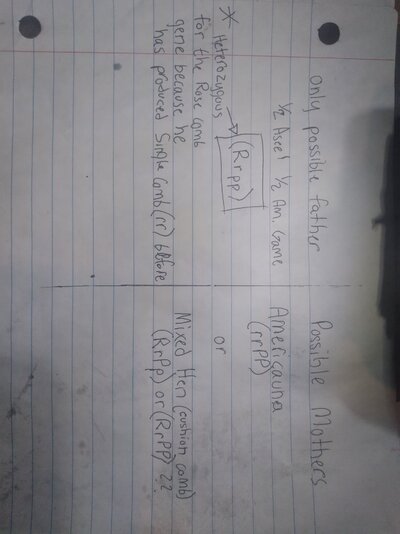 Only possible father
1/2 Aseel 1/2 Am. Game
(Rrpp)
* Heterozygous
for the Rose comb
gene because he
has produced Single Comb (rr) before
Possible Mothers
Americauna
(rrPP)
or
Mixed Hen (cushion comb)
(RrPp) or (RrPP) ??